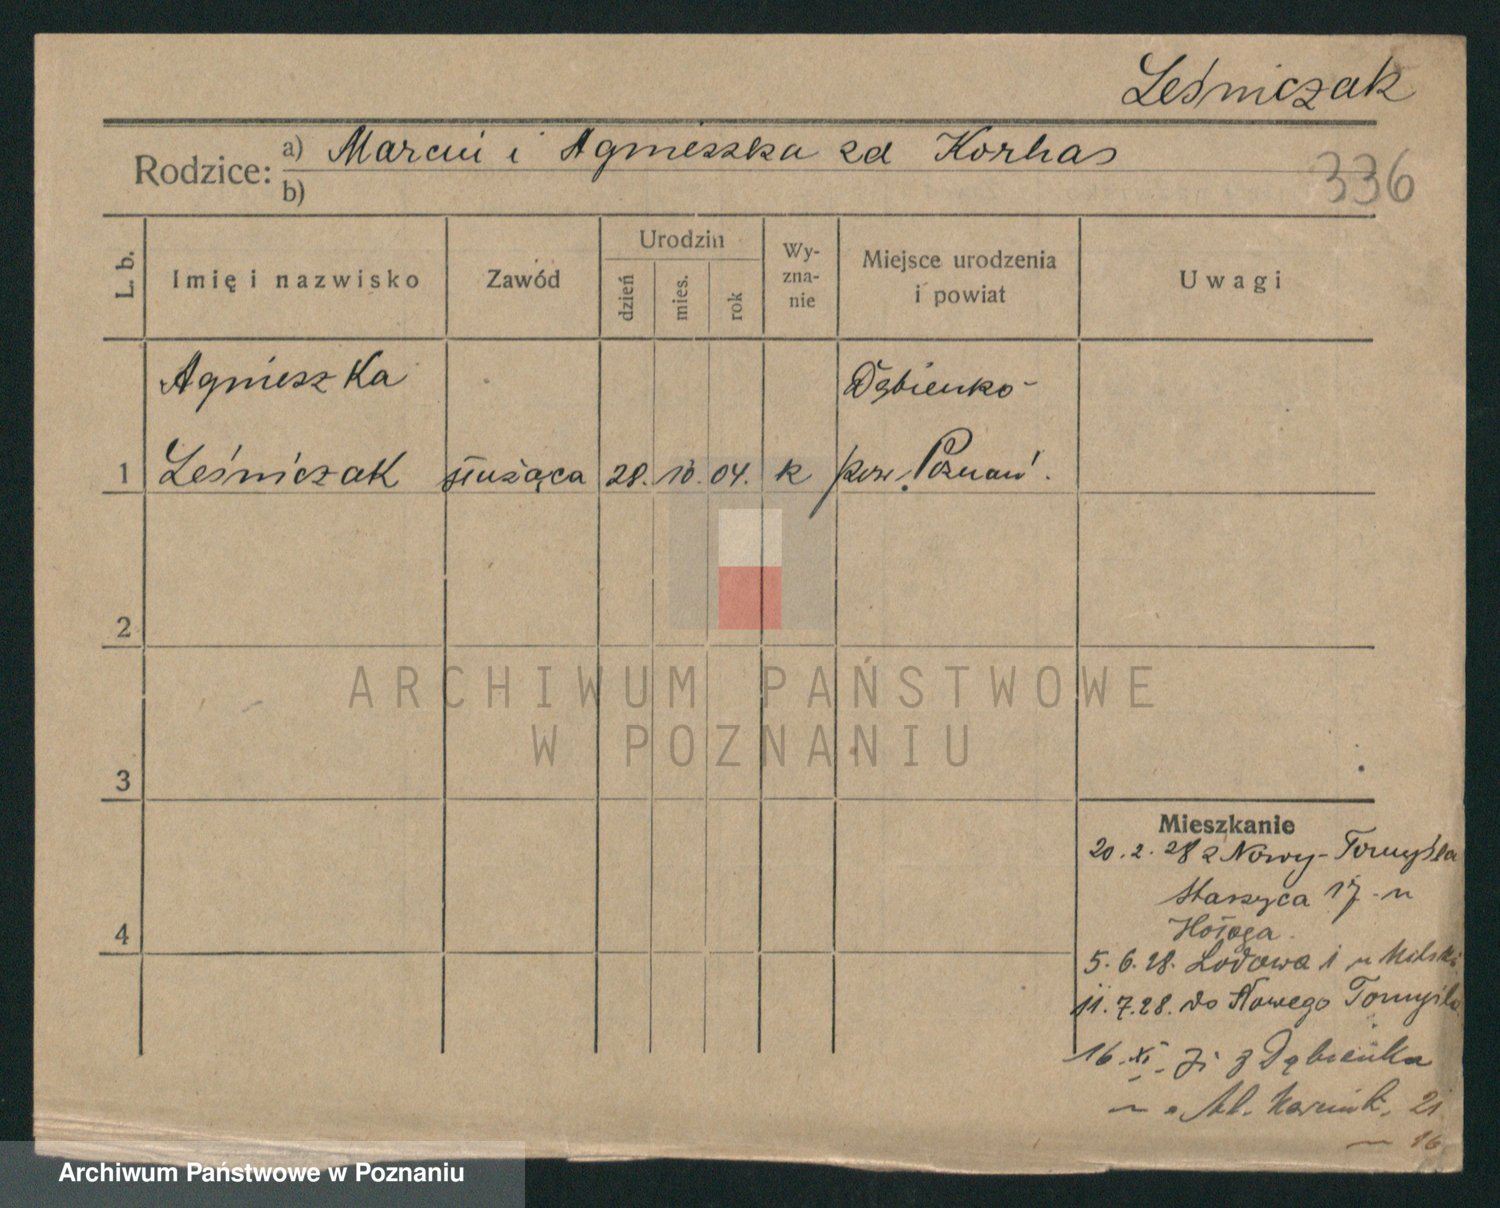 Leśniczak
Rodzice: a) Marcin i Agnieszka zd Korhas
b)
336
L. b.
Imię i nazwisko
Zawód
Urodzin
dzień
mies.
rok
Wy-
zna-
nie
Miejsce urodzenia
i powiat
Uwagi
Agnieszka
Dąbienko-
1 Leśniczak służąca 28. 10. 04. k pow. Poznań.
2
ARCHIWUM PAŃSTWOWE
W POZNANIU
3
Mieszkanie
20. 2. 28 z Nowy-Tomyśla
Staszyca 17 - u
Hołoga
4
5. 6. 28. Lodowa 1 u
11. 7. 28. do Nowego Tomyśla
16. XI. z Dąbienka
21
16
Archiwum Państwowe w Poznaniu